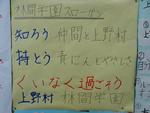 林間学園スローガン
知ろう 仲間と上野村
持とう 責にんとやさしさ
くいなく過ごそう
上野村 林間学園